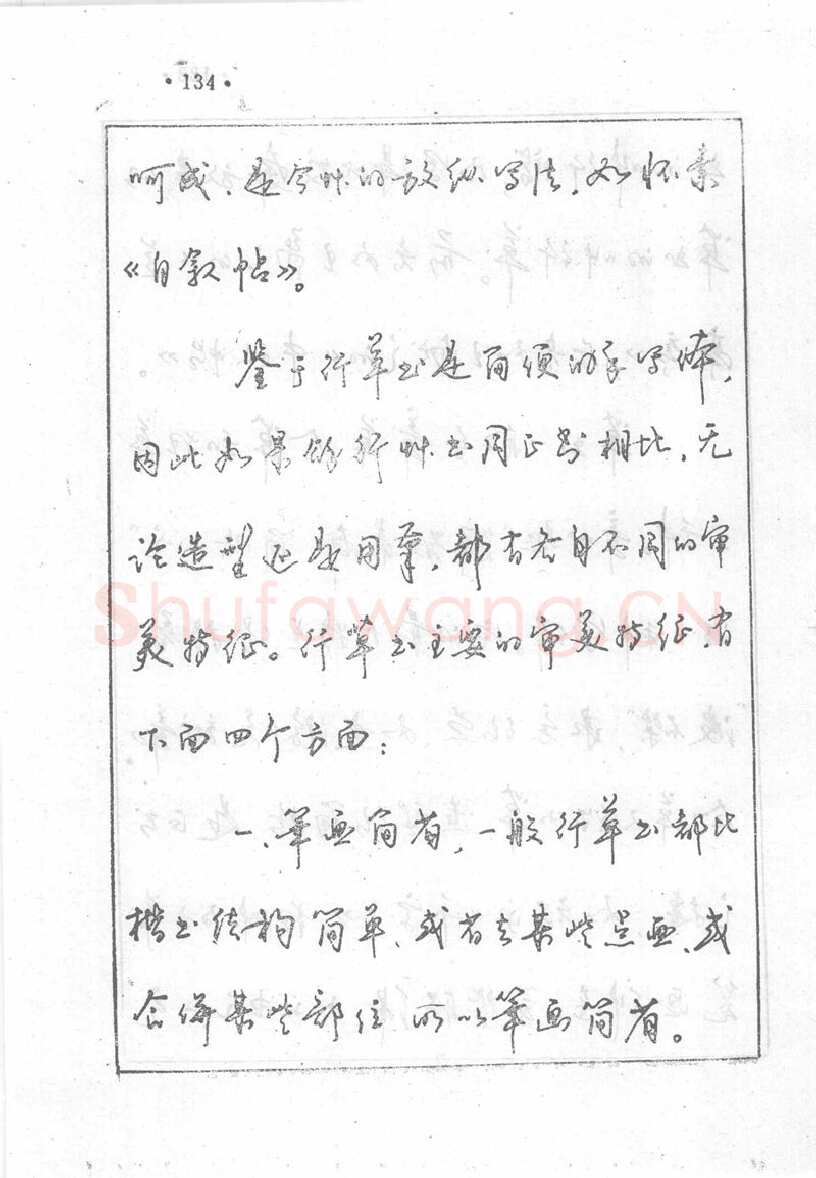 ·134·
呵成，是今艸的放纵写法，如怀素
《自叙帖》。
鉴于行草书是简便的手写体，
因此如果假行艸书同正书相比，无
论造型还是用笔，都有各自不同的审
美特征。行草书主要的审美特征，有
下面四个方面：
一、筆画简省，一般行草书都比
楷书结构简单，或省去某些点画，或
合併某些部位，所以筆画简省。
Shufawang.CN